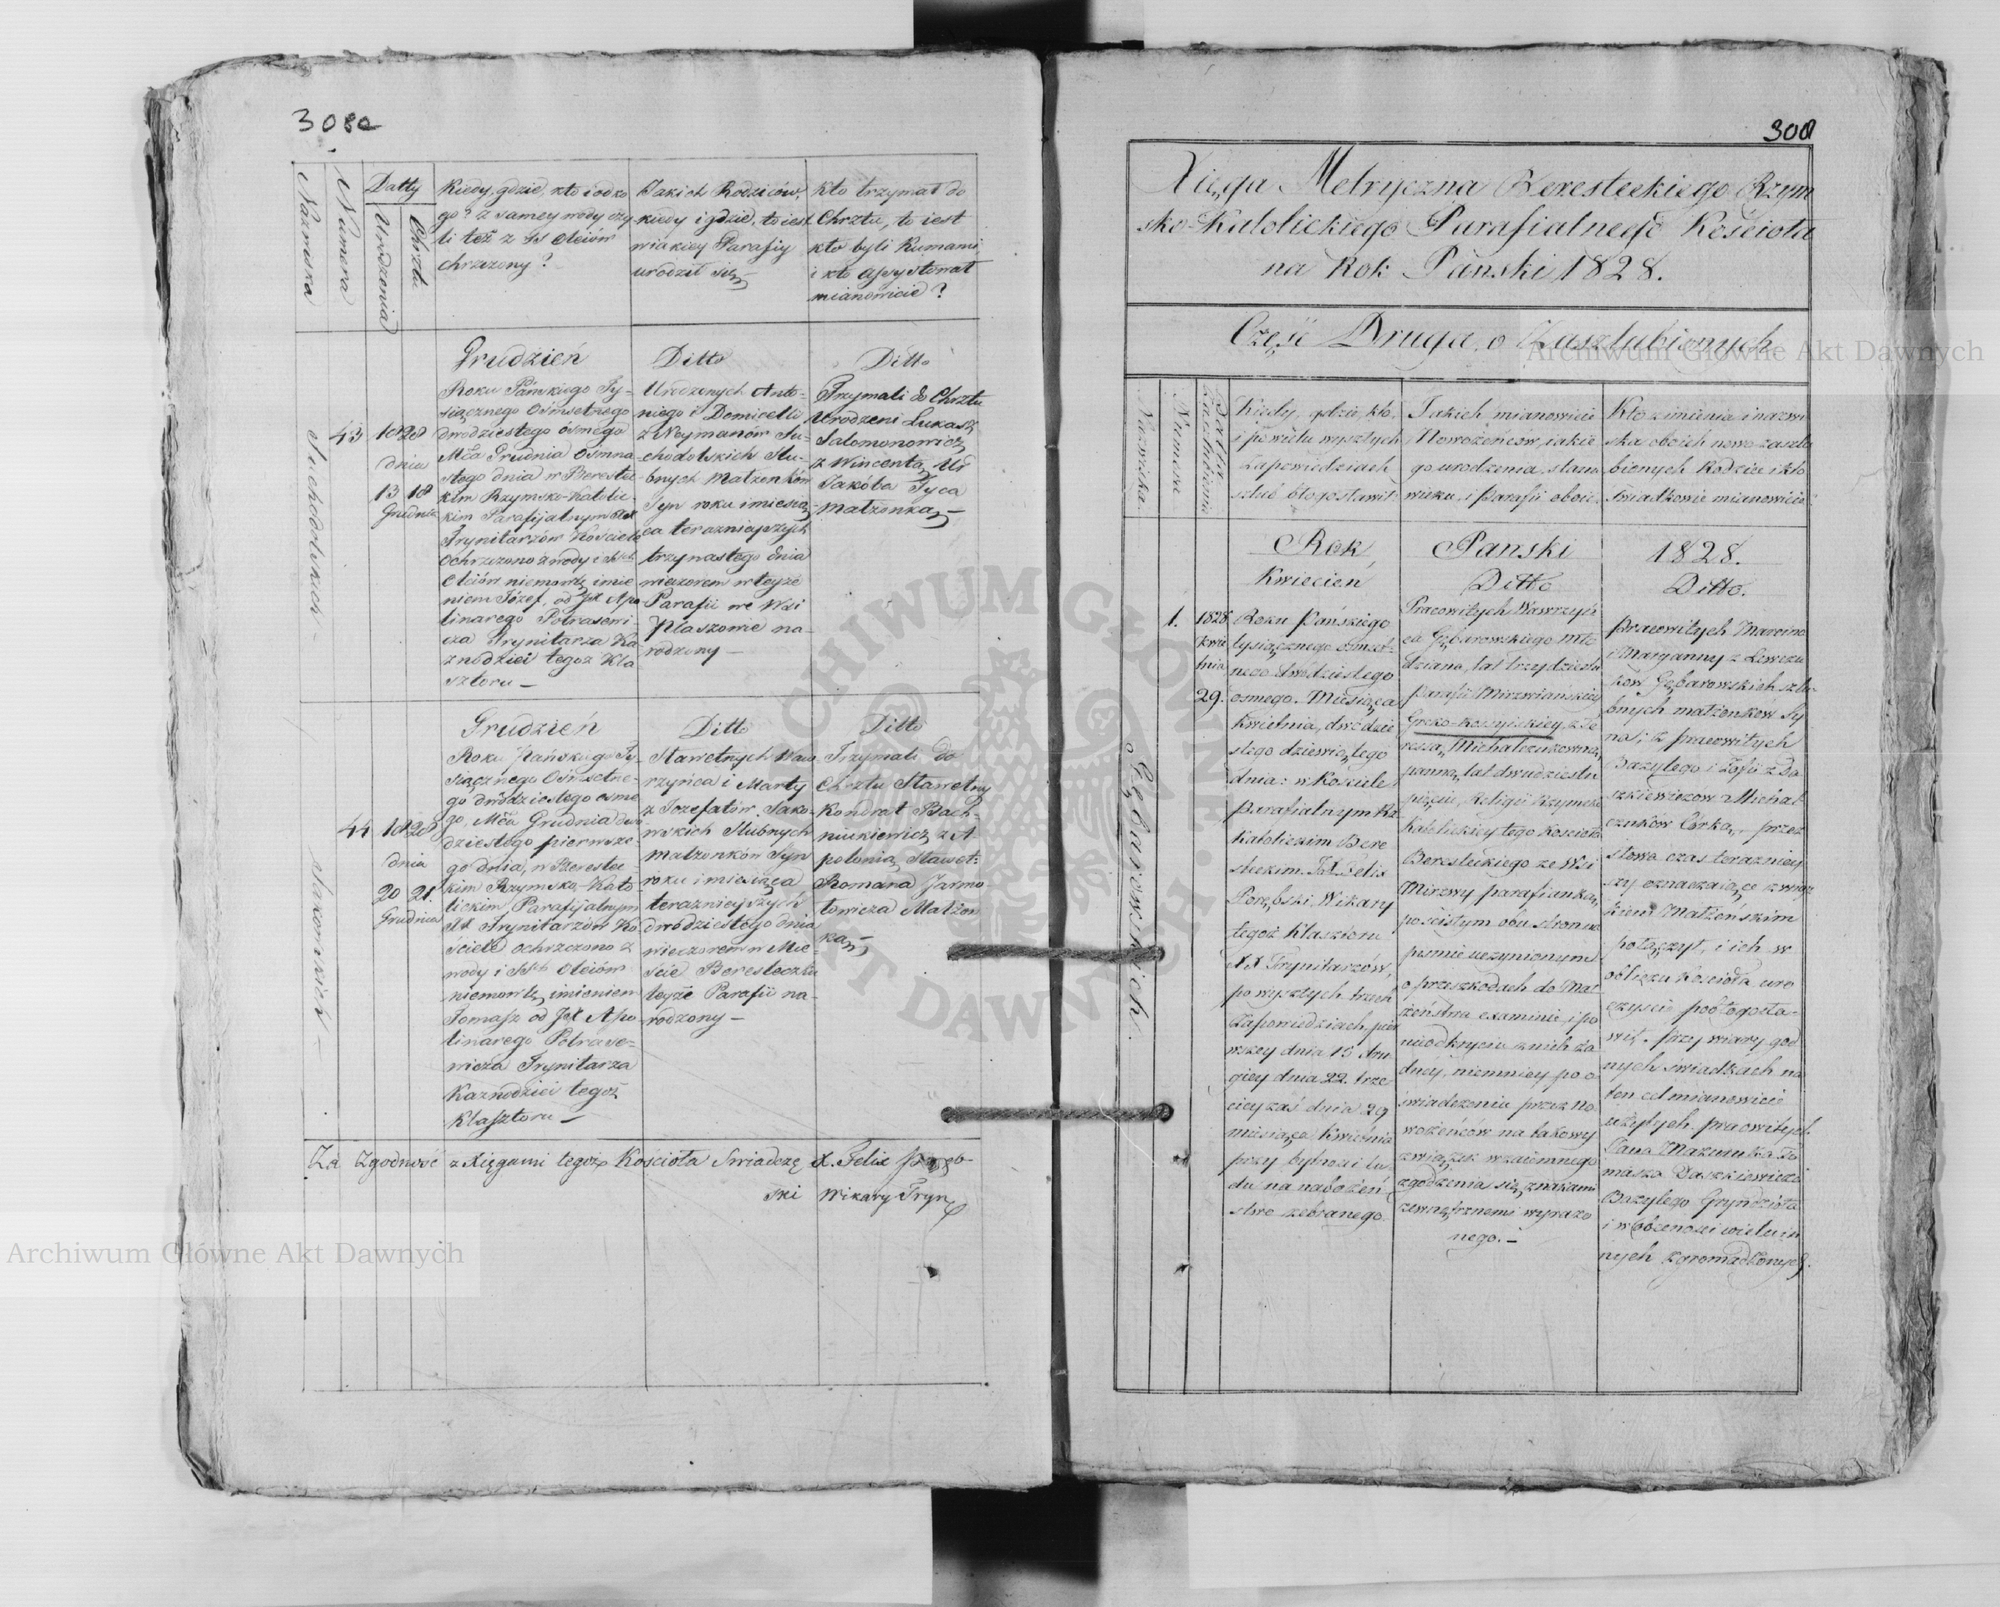 308a
Nazwiska
Numera
Datty
Urodzenia
Chrztu
Kiedy, gdzie, kto i od ko
go? z samey wody czy
li też z SS Oleiów
chrzczony?
Z Jakich Rodziców,
kiedy i gdzie, to iest
w iakiey Parafiy
urodził się
Kto trzymał do
Chrztu, to iest
kto byli Kumami
i kto assystował
mianowicie?
Suchodolskich
43
1828
dnia
13 18
Grudnia
Grudzień
Roku Pańskiego Ty-
siącznego Ośmsetnego
dwodziestego ósmego
Mca Grudnia Osmna-
stego dnia w Berestec
kim Rzymsko-Katolic-
kim Parafijalnym XX
Trynitarzów Kościele
Ochrzczono z wody i SSch
Oleiów niemowlę imie
niem Józef, od JX Apo
linarego Potrasewi-
cza Trynitarza Ka
znodziei tegoż Kla
sztoru —
Ditto
Urodzonych Anto-
niego i Domicelli
z Neymanów Su-
chodolskich Slu-
bnych Małżonków
Syn roku i miesią-
ca teraznieyszych
trzynastego dnia
wieczorem w teyże
Parafii we Wsi
Plaszowie na-
rodzony —
Ditto
Trzymali do Chrztu
Urodzeni Lukasz
Salomonowicz
z Wincentą Ur
Jakóba Tyca
małżonką —
Jakowskich
44
1828
dnia
20 21
Grudnia
Grudzień
Roku Pańskiego Ty-
siącznego Ośmsetne-
go dwódziestego osme
go, Mca Grudnia dwu-
dziestego pierwsze-
go dnia, w Berestec
kim Rzymsko-Kato
lickim Parafijalnym
XX Trynitarzów Ko
ściele ochrzczono z
wody i SSch Oleiów
niemowlę imieniem
Tomasz od JX Apo
linarego Potrase-
wicza Trynitarza
Kaznodziei tegoż
Klasztoru —
Ditto
Sławetnych Waw
rzyńca i Marty
z Jozefatów Jako-
wskich Slubnych
Małżonków Syn
roku i miesiąca
teraznieyszych
dwódziestego dnia
wieczorem w Mie-
ście Beresteczku
teyże Parafii na-
rodzony —
Ditto
Trzymali do
Chrztu Sławetny
Kondrat Bach-
niukiewicz z A
polonią Sławet:
Romana Jarmo
łowicza Małżon
ką —
Za Zgodność z Xięgami tegoż Kościoła Swiadczę X. Felix Poręb-
ski Wikary Tryn
308
Xięga Metryczna Beresteckiego Rzym
sko-Katolickiego Parafialnego Kościoła
na Rok Panski 1828.
Część Druga, o Zaszlubionych
Nazwiska
Numera
Datta
Zaszlubienia
Kiedy, gdzie, kto,
i po wielu wyszłych
Zapowiedziach
szlub błogosławił
Jakich mianowicie
Nowożeńców, iakie
go urodzenia, stanu
wieku, i parafii oboie
Kto z imienia i nazwi
ska oboich nowo zaszlu
bionych Rodzice i kto
Swiadkowie mianowicie
Gębarowskich
1.
1828
Kwie
tnia
29.
Rok
Kwiecien
Roku Pańskiego
tysiącznego osmset-
nego dwódziestego
osmego. Miesiąca
Kwietnia, dwódzie
stego dziewiątego
dnia: w Kościele
Parafialnym Rz
Katolickim Bere
steckim. JX Felix
Porębski Wikary
tegoż Klasztoru
XX Trynitarzów,
po wyszłych trzech
Zapowiedziach, pier
wszey dnia 15 dru
giey dnia 22. trze
ciey zaś dnia 29
miesiąca Kwietnia
przy bytności lu-
du na nabożeń
stwo zebranego.
Panski
Ditto
Pracowitych Wawrzyń
ca Gębarowskiego Mło
dziana, lat trzydziestu
parafii Mirzwiańskiey
Greko-Rossyiskiey, z Te
ressą Michalczukowną,
panną, lat dwudziestu
pięciu, Religii Rzymsko
katolickiey tego Kościoła
Beresteckiego ze Wsi
Mirzwy parafianką,
po ścisłym obu stron na
pismie uczynionym
o przeszkodach do Mał
żeństwa examinie, i po
nieodkryciu z nich ża
dney, niemniey po o
świadczeniu przez no
wożeńców na takowy
związek wzaiemnego
zgodzenia się, znakami
zewnętrznemi wyrażo
nego. —
1828.
Ditto.
pracowitych Marcina
i Maryanny z Lewczu
ków Gębarowskich szlu-
bnych małżonkow Sy
na; z pracowitych
Bazylego i Zofii z Da
szkiewiczow Michal
czuków Córką, — przez
słowa czas terazniey
szy oznaczaiące związ
kiem Małżeńskim
połączył, i ich w
obliczu Kościoła uro
czyscie pobłogosła-
wił. przy wiary god
nych swiadkach na
ten cel mianowicie
użytych. pracowitych
Jana Mazuruka To
masza Daszkiewicza
Bazylego Gryndzioła
i w obecności wielu in
nych zgromadzonych.
Archiwum Główne Akt Dawnych
Archiwum Główne Akt Dawnych
ARCHIWUM GŁÓWNE AKT DAWNYCH